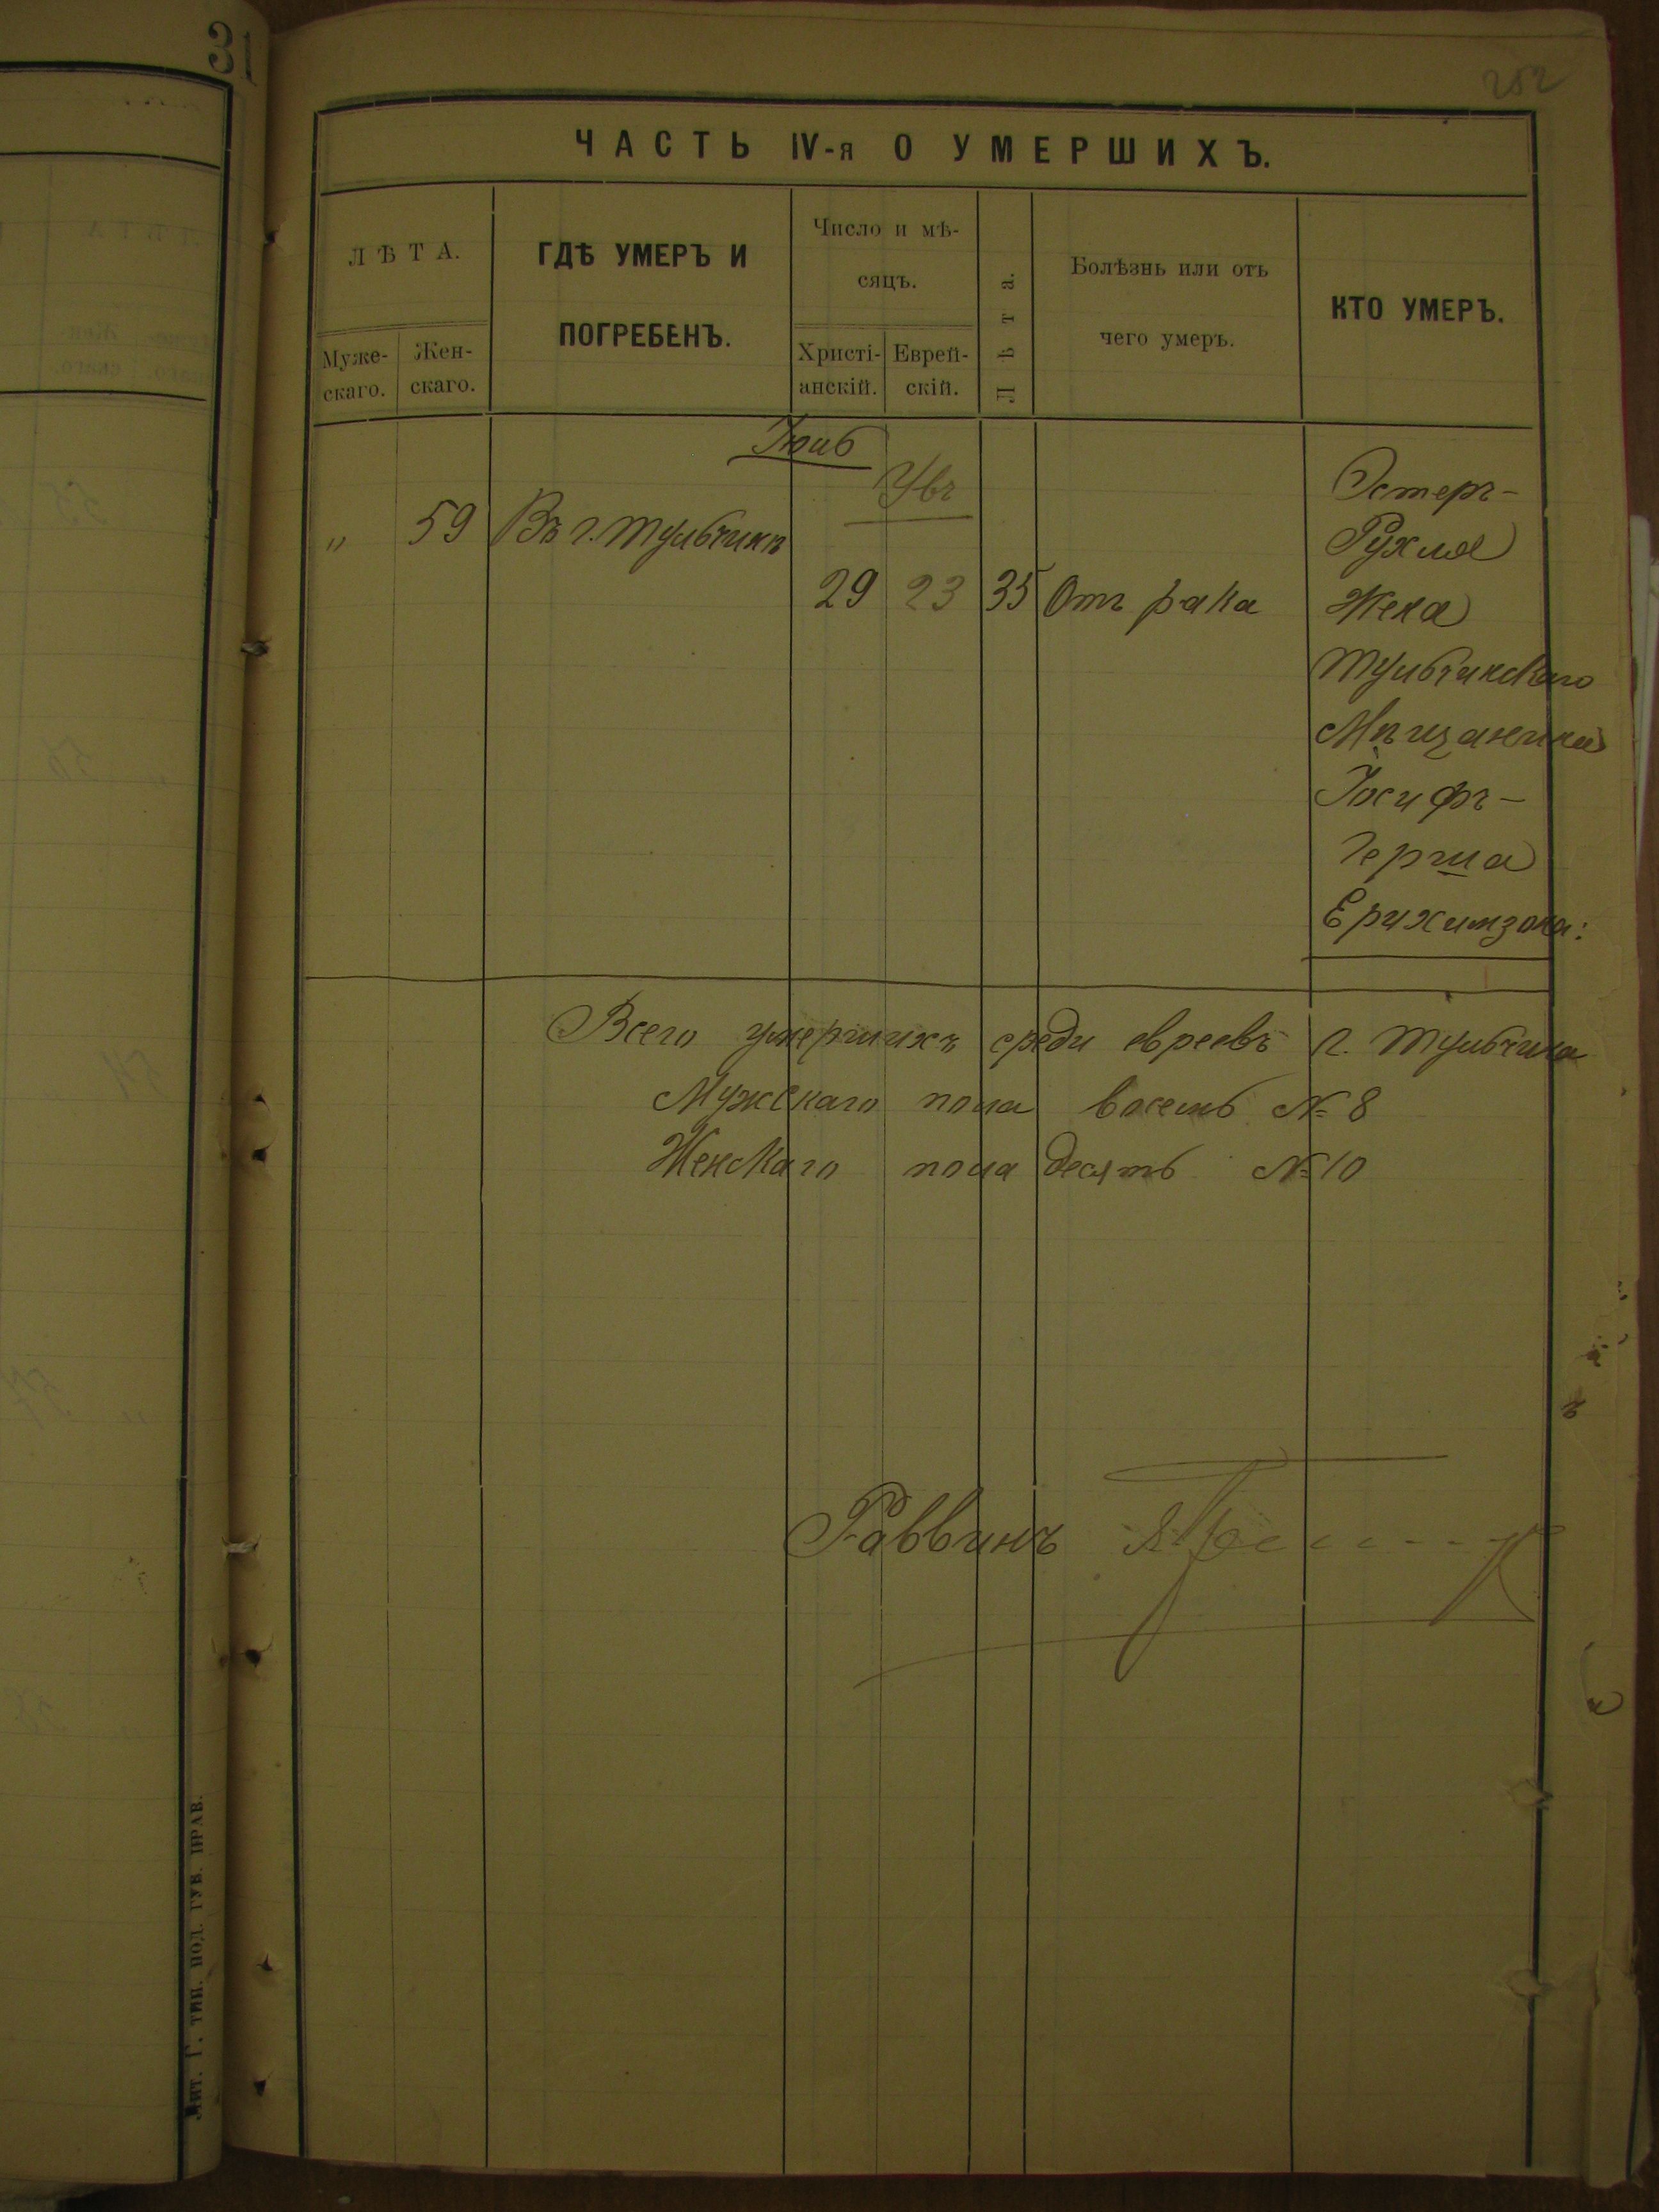 31
252
ЧАСТЬ IV-я О УМЕРШИХЪ.
ЛѢТА.
Муже-
скаго.
Жен-
скаго.
ГДѢ УМЕРЪ И
ПОГРЕБЕНЪ.
Число и мѣ-
сяцъ.
Христі-
анскій.
Еврей-
скій.
Лѣта.
Болѣзнь или отъ
чего умеръ.
КТО УМЕРЪ.
Іюнь
"
59
Въ г. Тульчинѣ
29
23
35
Отъ рака
Эстеръ-
Рухля
Жена
Тульчинскаго
Мѣщанина
Іосифъ-
Герша
Ерихимзона:
Всего умершихъ среди евреевъ г. Тульчина
Мужскаго пола восемь № 8
Женскаго пола десять № 10
Раввинъ
Лит. Г. тип. Под. Губ. Прав.